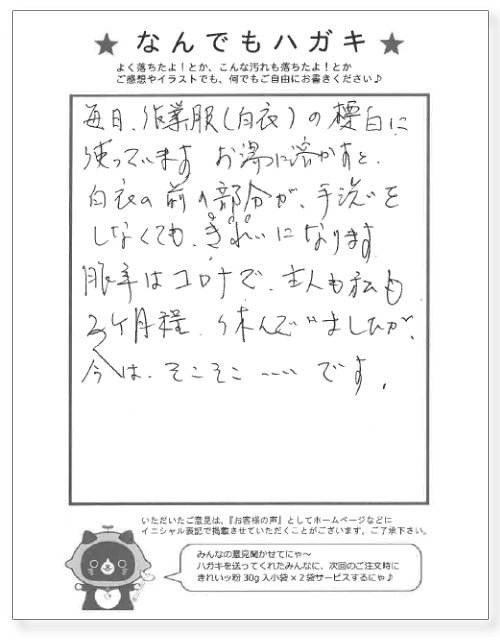 ★ なんでもハガキ ★
よく落ちたよ！とか、こんな汚れも落ちたよ！とか
ご感想やイラストでも、何でもご自由にお書きください♪
毎日、作業服(白衣)の標白に
使っています お湯に溶かすと、
白衣の前の部分が、手洗いを
しなくても、きれいになります
昨年はコロナで、主人も私も
2ヶ月程、休んでいましたが、
今は、そこそこ ‥‥ です。
いただいたご意見は、『お客様の声』としてホームページなどに
イニシャル表記で掲載させていただくことがございます。ご了承下さい。
みんなの意見聞かせてにゃ～
ハガキを送ってくれたみんなに、次回のご注文時に
きれいッ粉 30g 入小袋 × 2 袋サービスするにゃ♪